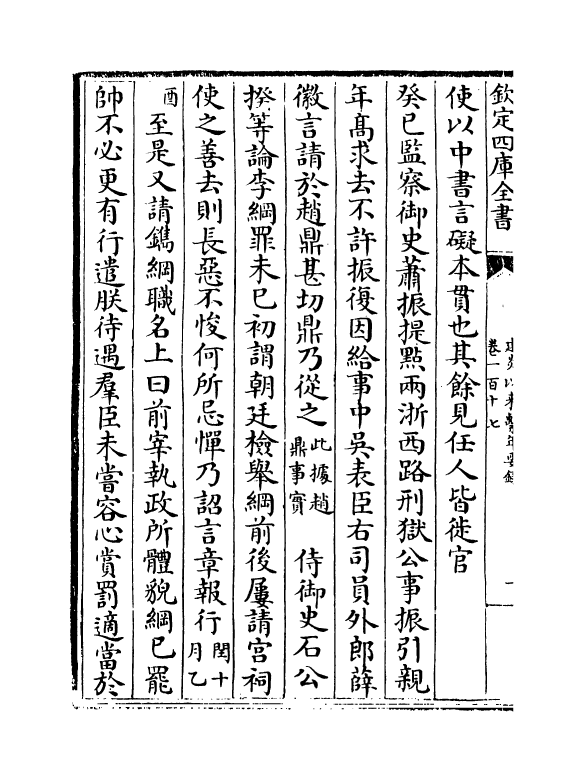 欽定四庫全書
建炎以來繫年要錄
卷一百十七
一
使以中書言礙本貫也其餘見任人皆徙官
癸巳監察御史蕭振提點兩浙西路刑獄公事振引親
年髙求去不許振復因給事中吳表臣右司員外郎薛
徽言請於趙鼎甚切鼎乃從之此據趙鼎事實 侍御史石公
揆等論李綱罪未已初謂朝廷檢舉綱前後屢請宮祠
使之善去則長惡不悛何所忌憚乃詔言章報行閏十月乙
酉至是又請鐫綱職名上曰前宰執政所體貌綱已罷
帥不必更有行遣朕待遇羣臣未嘗容心賞罰適當於